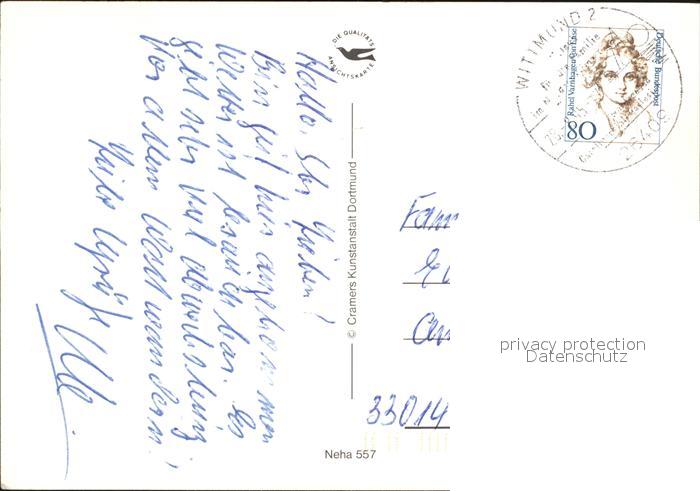 Hallo, Ihr Lieben!
Bin gut hier angekommen
Wetter ist brauchbar. Es
gibt sehr viel Abwechslung,
vor allem Wattwandern.
Viele Grüße
Uli
DIE QUALITÄTS
ANSICHTSKARTE
© Cramers Kunstanstalt Dortmund
Neha 557
WITTMUND 2
26409
Deutsche Bundespost
Rahel Varnhagen von Ense
80
Fam
33014
privacy protection
Datenschutz